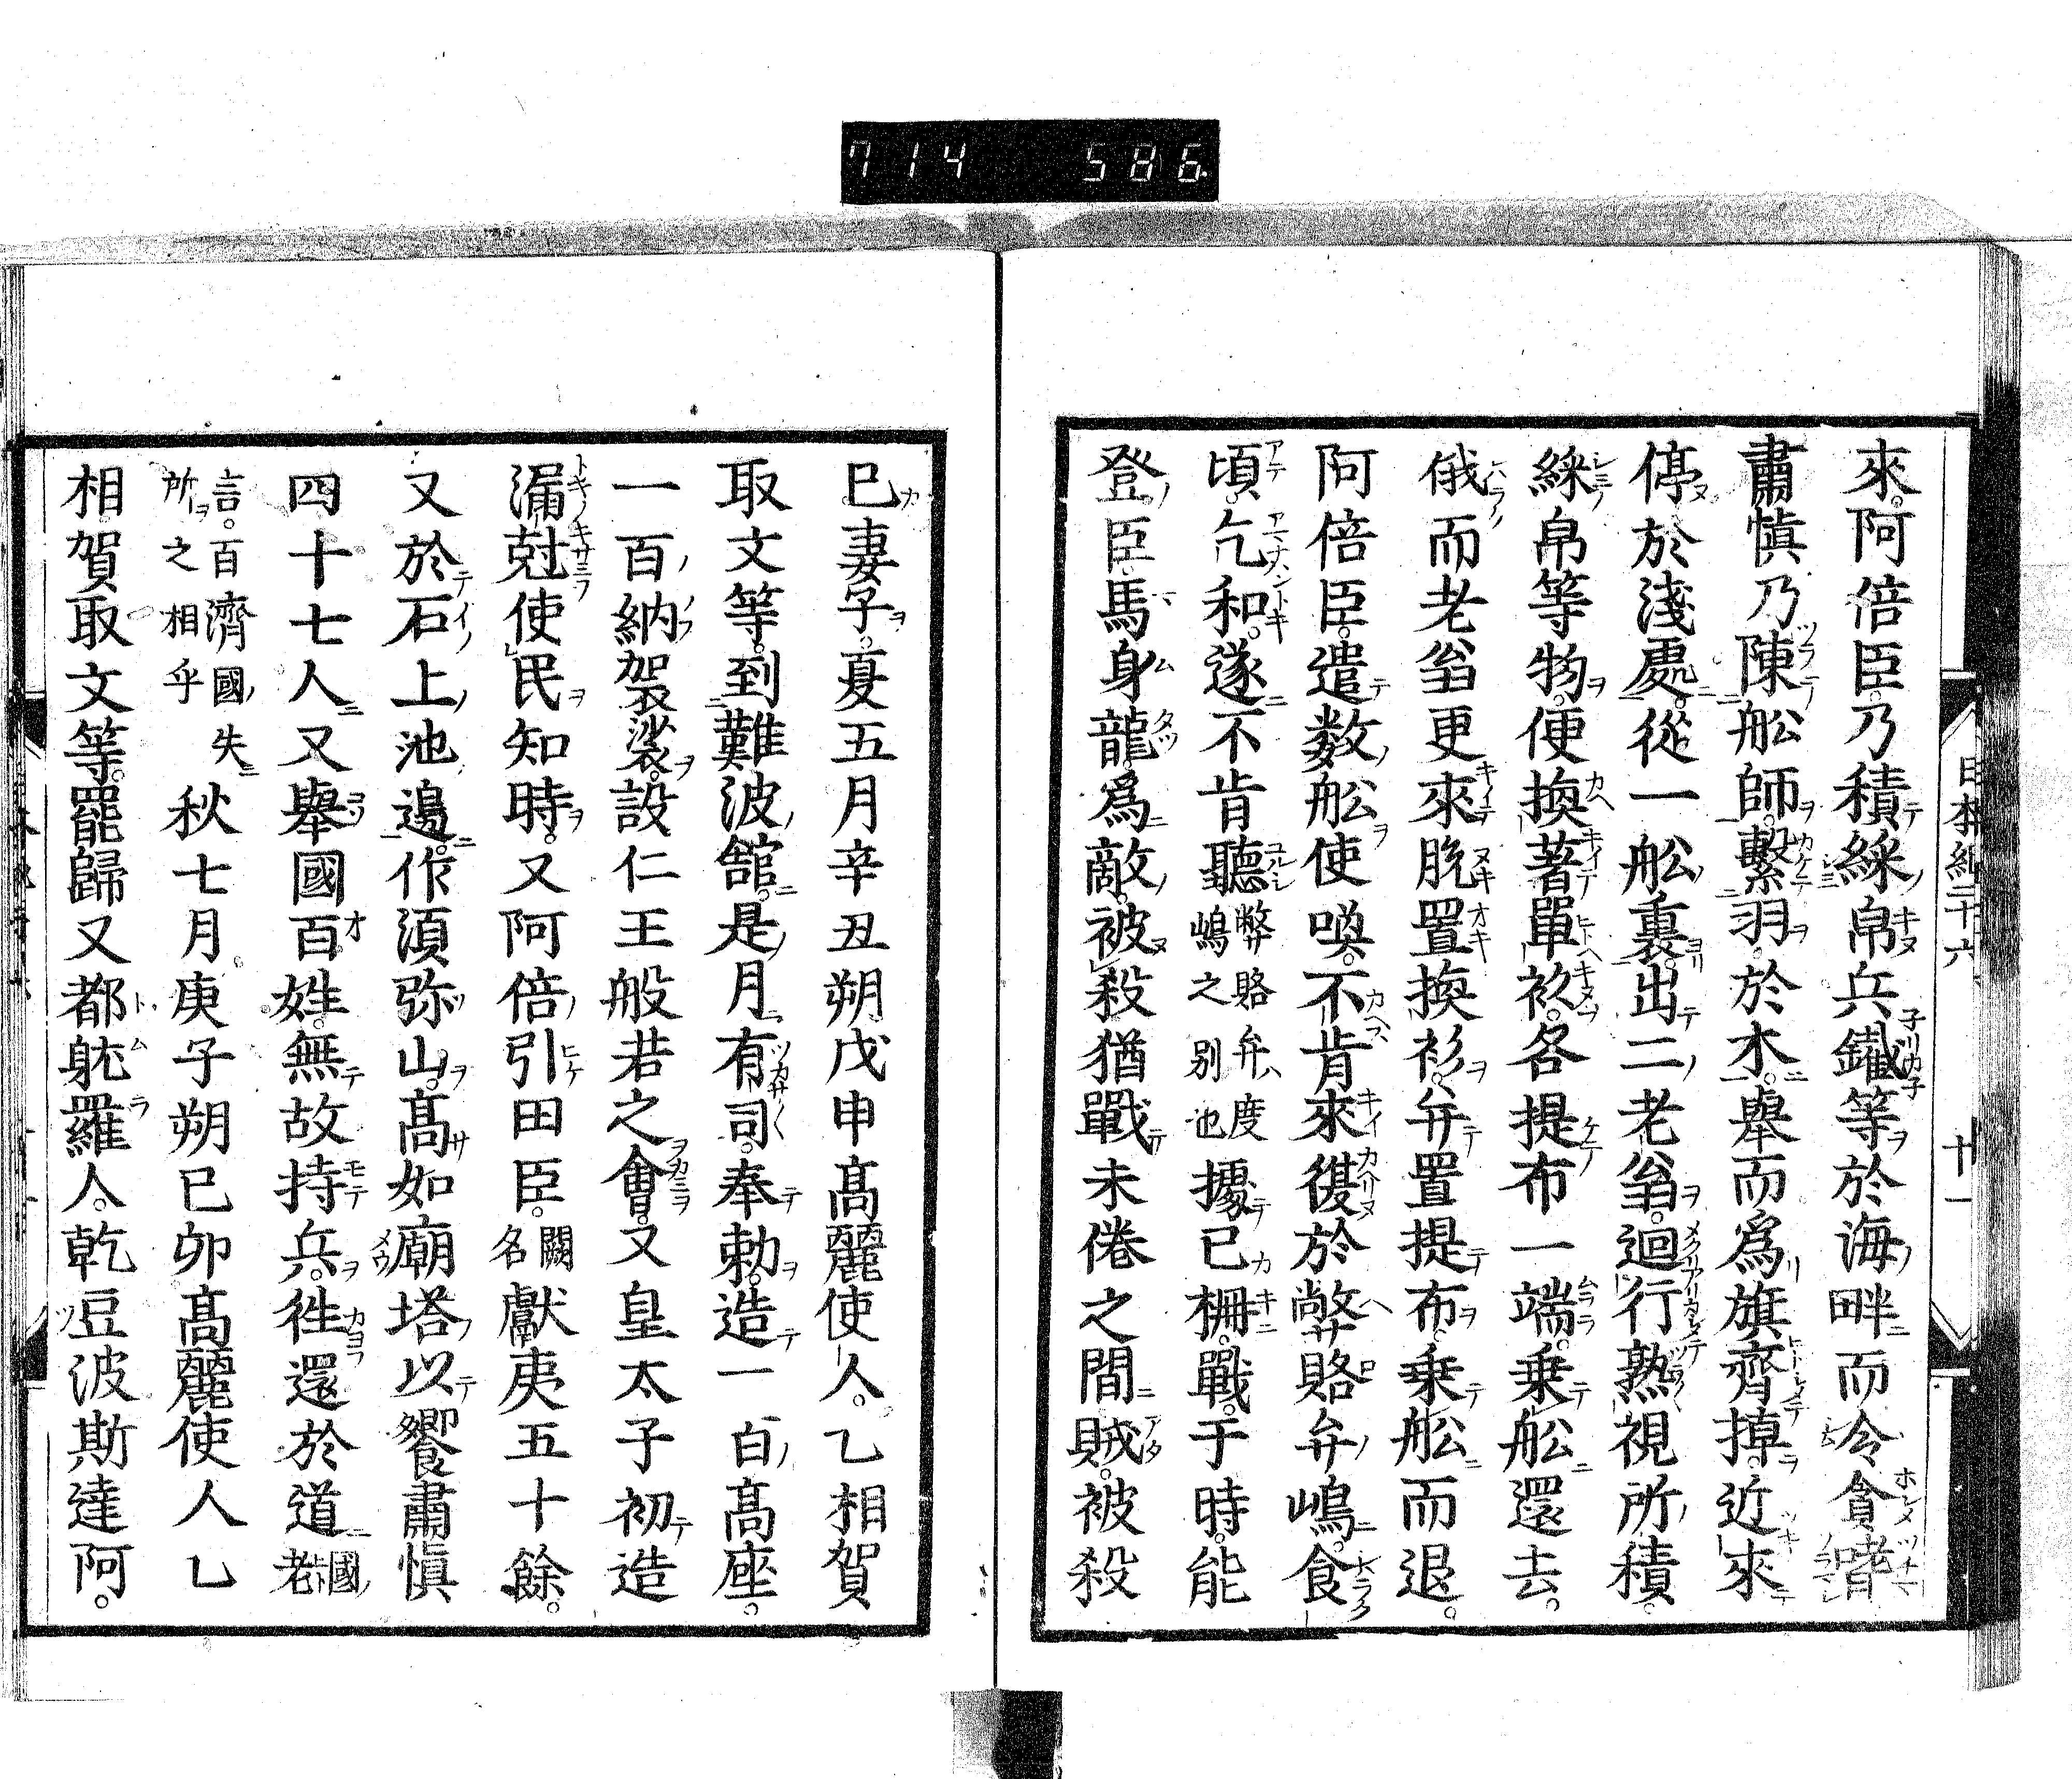 714 586
日本紀二十六 十一
來。阿倍臣。乃積綵帛兵鐵等於海畔而令貪嗜
肅愼乃陳舩師。繫羽於木。舉而爲旗齊棹。近來
停於淺處。從一舩裏。出二老翁。迴行熟視所積
綵帛等物。便換著單衫。各提布一端。乗舩還去。
俄而老翁更來脱置換衫。幷置提布。乗舩而退。
阿倍臣。遣数舩使喚。不肯來。復於弊賂弁嶋。食
頃。乞和。遂不肯聽弊賂弁。度嶋之別也據己柵。戰。于時。能
登臣馬身龍。爲敵。被殺猶戰未倦之間賊。被殺
己妻子。夏五月辛丑朔戊申髙麗使人。乙相賀
取文等。到難波舘。是月有司。奉勅。造一百髙座。
一百納袈裟。設仁王般若之會。又皇太子初造
漏尅使民知時。又阿倍引田臣。闕名獻夷五十餘。
又於石上池邊。作湏弥山。髙如廟塔以饗肅愼
四十七人又舉國百姓。無故持兵。徃還於道國老
言。百濟國失所之相乎 秋七月庚子朔己卯髙麗使人乙
相賀取文等。罷歸又都躭羅人。乾豆波斯達阿。